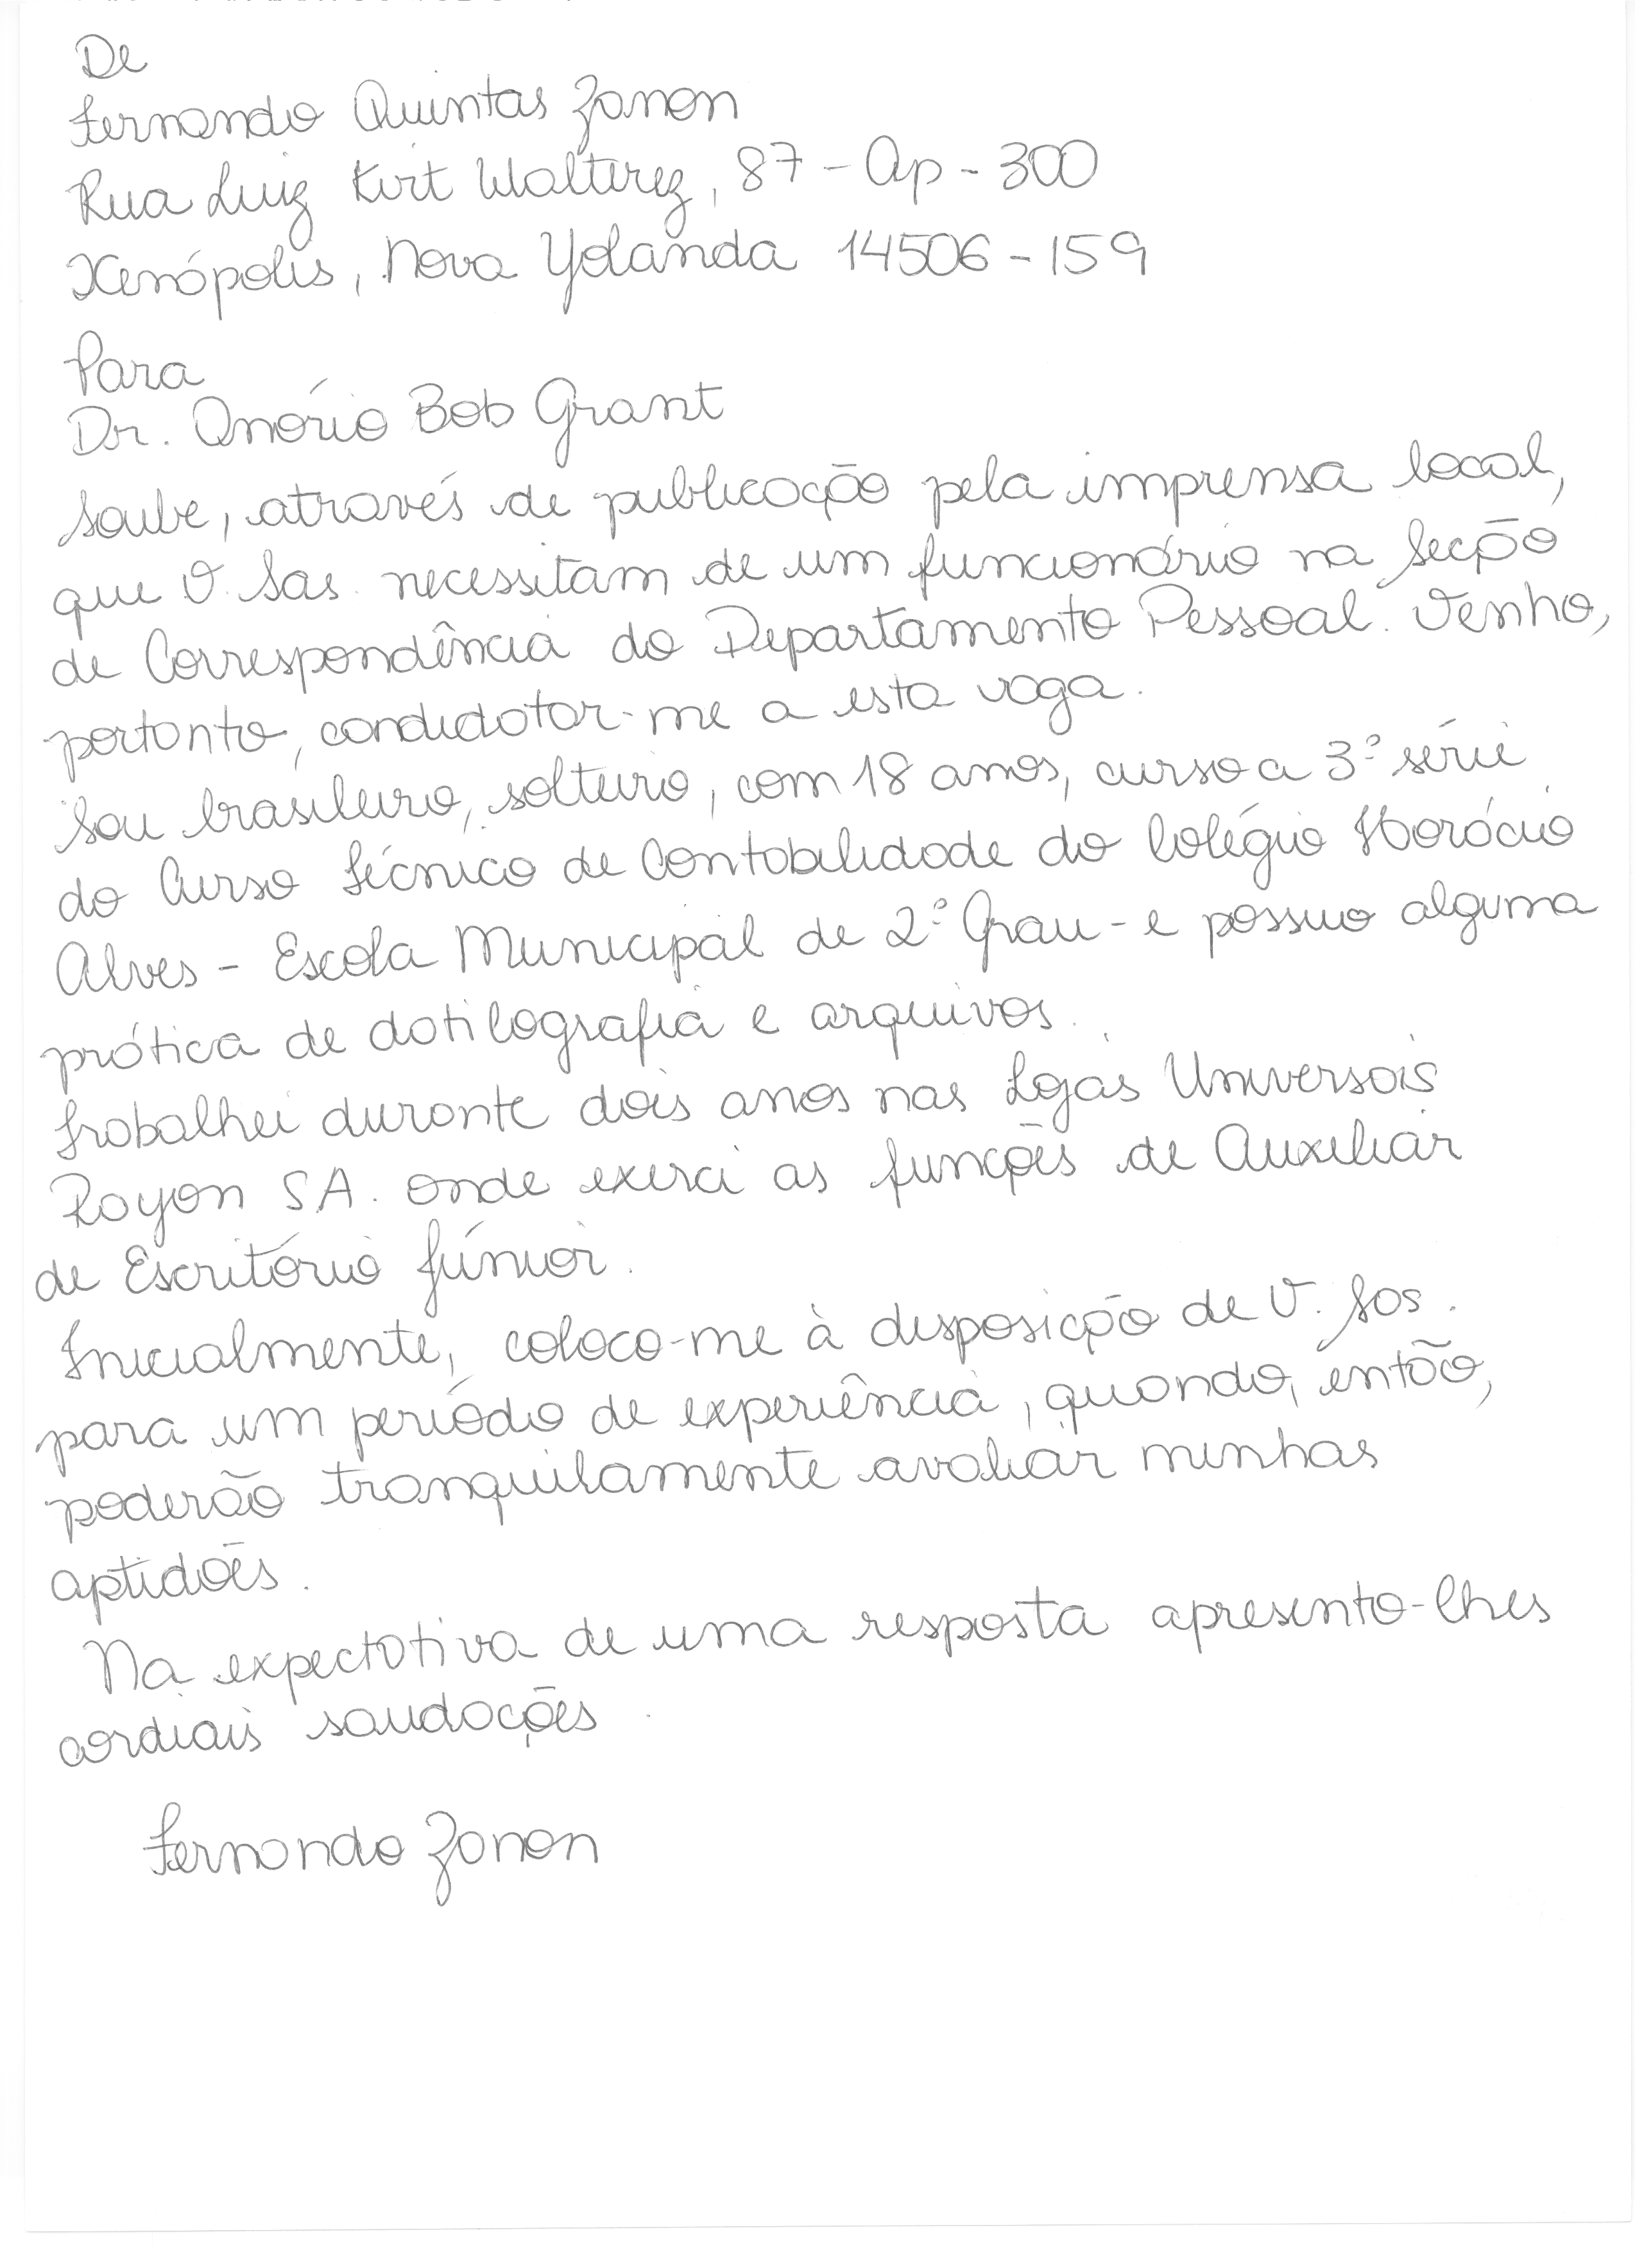 De
Fernando Quintas Zanon
Rua Luiz Kirt Walterez, 87 - Ap - 300
Xenópolis, Nova Yolanda 14506-159
Para
Dr. Onório Bob Grant
Soube, através de publicação pela imprensa local,
que V. Sas. necessitam de um funcionário na Secção
de Correspondência do Departamento Pessoal. Venho,
portanto, candidatar-me a esta vaga.
Sou brasileiro, solteiro, com 18 anos, curso a 3ª série
do Curso Técnico de Contabilidade do Colégio Horácio
Alves - Escola Municipal de 2º Grau - e possuo alguma
prática de datilografia e arquivos.
Trabalhei durante dois anos nas Lojas Universais
Rayon S.A. onde exerci as funções de Auxiliar
de Escritório Júnior.
Inicialmente, coloco-me à disposição de V. Sas.
para um período de experiência, quando, então,
poderão tranquilamente avaliar minhas
aptidões.
Na expectativa de uma resposta apresento-lhes
cordiais saudações.
Fernando Zanon